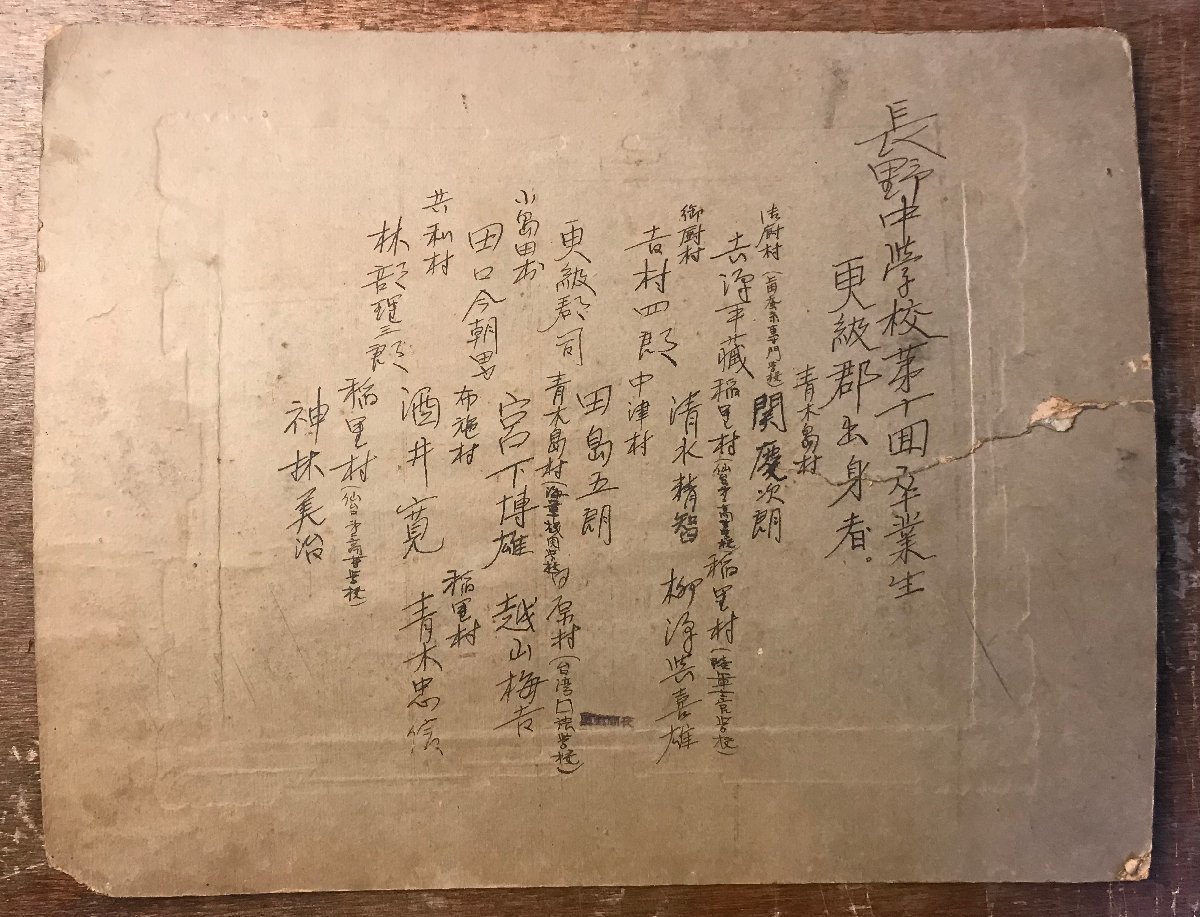 長野中学校第十回卒業生
更級郡出身者。
青木島村
関慶次朗
御厨村(上田蚕糸専門学校)
吉澤平藏
稲里村
稲里村
御厨村
清水精智
柳澤与喜雄
吉村四郎
中津村
更級郡司
田島五朗
青木島村(海軍機関学校)
原村(台湾口語学校)
小島田村
田口今朝男
宮下博雄
越山梅吉
共和村
布施村
稲里村
林部理三郎
酒井寛
青木忠信
稲里村(仙台第二高等学校)
神林美治